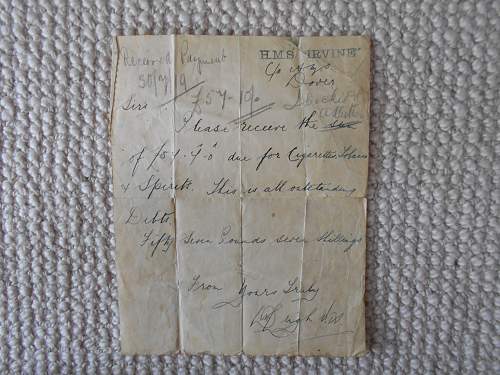 H.M.S "IRVINE"
Received Payment
30/7/19
C/o G.P.O
Dover
Sirs £57-10/0
Please receive the
of £57. 7. 0 due for Cigarettes, Tobacco
& Spirits. This is all outstanding
Debts
Fifty Seven Pounds seven shillings
From
Yours Truly